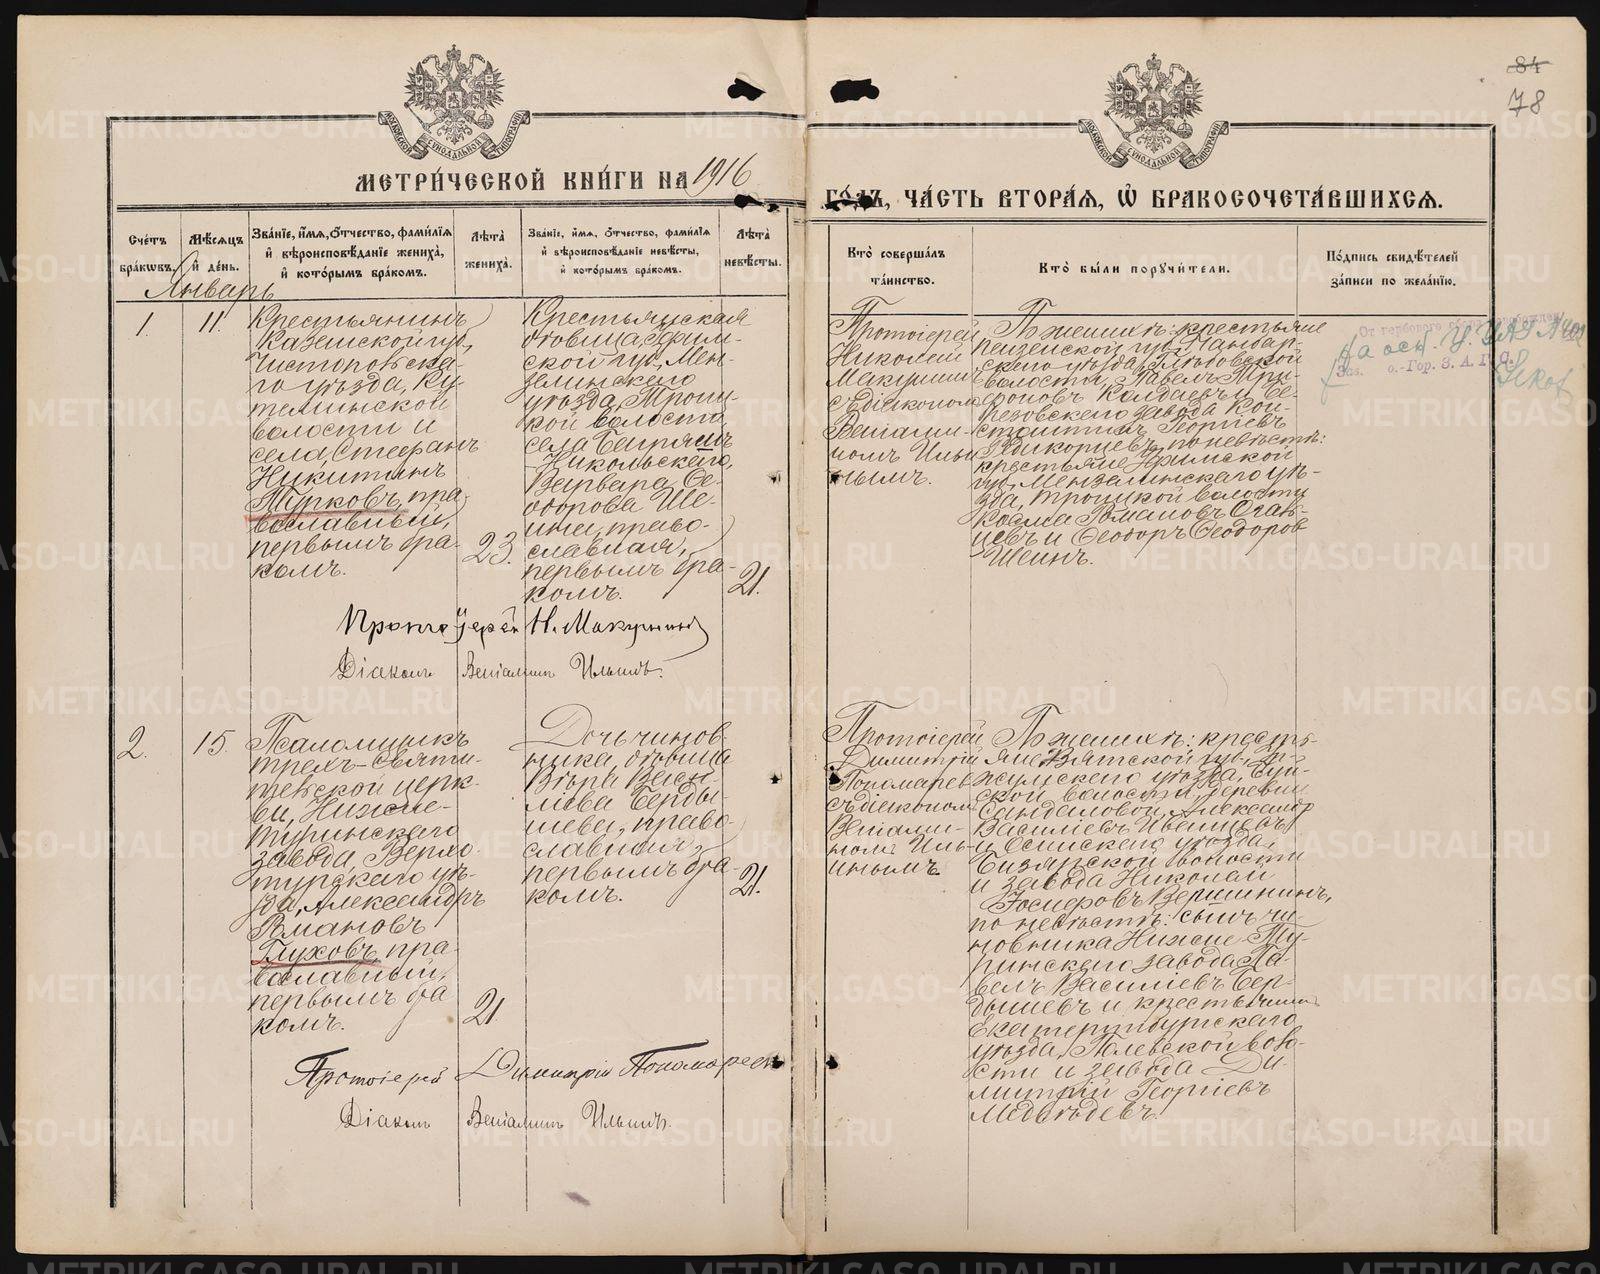 84
78
МОСКОВСКОЙ СѴНОДАЛЬНОЙ ТИПОГРАФІИ
МОСКОВСКОЙ СѴНОДАЛЬНОЙ ТИПОГРАФІИ
МЕТРИ́ЧЕСКОЙ КНИ́ГИ НА 1916
ГО́ДЪ, ЧА́СТЬ ВТОРА́Я, Ѡ҆ БРАКОСОЧЕТА́ВШИХСЯ.
Сче́тъ
бра́кѡвъ.
Мѣ́сяцъ
и҆ де́нь.
Зва́ніе, и҆́мя, ѻ҆́тчество, фами́лія
и҆ вѣроисповѣ́даніе жениха̀,
и҆ кото́рымъ бра́комъ.
Лѣ́та
жениха̀.
Зва́ніе, и҆́мя, ѻ҆́тчество, фами́лія
и҆ вѣроисповѣ́даніе невѣ́сты,
и҆ кото́рымъ бра́комъ.
Лѣ́та
невѣ́сты.
Кто̀ соверша́лъ
та́инство.
Кто̀ бы́ли порꙋчи́тели.
По́дпись свидѣ́телей
за́писи по жела́нію.
Январь
1.
11.
Крестьянинъ
Казанской губ.,
Чистопольска-
го уѣзда, Ку-
теминской
волости и
села, Стефанъ
Никитинъ
Турковъ, пра-
вославный,
первымъ бра-
комъ.
23.
Крестьянская
дѣвица, Уфим-
ской губ., Мен-
зелинскаго
уѣзда, Троиц-
кой волости,
села Багряшъ
Никольскаго,
Варвара Ѳе-
одорова Ше-
ина, право-
славная,
первымъ бра-
комъ.
21.
Протоіерей
Николай
Макушинъ
съ діакономъ
Веніами-
номъ Ильи-
нымъ.
По женихѣ: крестьяне
Пензенской губ., Чембар-
скаго уѣзда,
волости, Павелъ Три-
фоновъ Калдаевъ и Бе-
резовскаго завода Кон-
стантинъ Георгіевъ
по невѣстѣ:
крестьяне Уфимской
губ., Мензелинскаго уѣ-
зда, Троицкой волости
Косьма Романовъ
и Ѳеодоръ Ѳеодоровъ
Шеинъ.
На осн.
Протоіерей Н. Макушинъ
Діаконъ Веніаминъ Ильинъ.
2.
15.
Псаломщикъ
Трехъ-Святи-
тельской церк-
ви, Нижне-
Туринскаго
завода, Верхо-
турскаго уѣ-
зда, Александръ
Романовъ
Глуховъ, пра-
вославный,
первымъ бра-
комъ.
21.
Дочь чинов-
ника, дѣвица
Вѣра Васи-
льева Берды-
шева, право-
славная,
первымъ бра-
комъ.
21.
Протоіерей
Димитрій
Пономаревъ
съ діакономъ
Веніами-
номъ Иль-
инымъ.
По женихѣ: кресть-
яне Вятской губ., Ур-
жумскаго уѣзда, Буй-
ской волости, деревни
Сандаловой, Александръ
Василіевъ Ивенцевъ
и Осинскаго уѣзда,
Бизярской волости
и завода Николай
Іосифовъ Вершининъ,
по невѣстѣ: сынъ чи-
новника Нижне-Ту-
ринскаго завода Па-
велъ Василіевъ Бер-
дышевъ и крестьянинъ
Екатеринбургскаго
уѣзда, Полевской воло-
сти и завода Ди-
митрій Георгіевъ
Медвѣдевъ.
Протоіерей Димитрій Пономаревъ
Діаконъ Веніаминъ Ильинъ.
METRIKI.GASO-URAL.RU